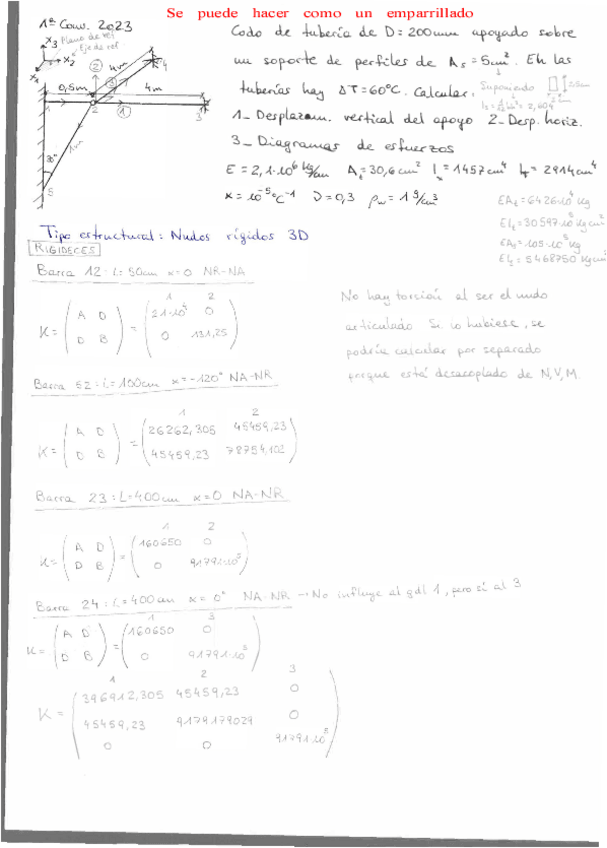 Se puede hacer como un emparrillado
1ª Conv. 2023
Codo de tubería de D=200mm apoyado sobre
x3 Plano de ref
Eje de ref
x2
x1
4m
un soporte de perfiles de As = 5cm². En las
0,5m
4m
tuberías hay ΔT=60°C. Calcular.
Suponiendo
1 2 ① 3
1_ Desplazam. vertical del apoyo 2_Desp. horiz.
3_ Diagramas de esfuerzos
30°
1m
5
E = 2,1·10⁶ kg/cm At=30,6cm² I=1457cm⁴ It=2914cm⁴
α=10⁻⁵ °C⁻¹ ν=0,3 ρw=1 g/cm³
EAt=6426·10⁴ kg
EIt=30597·10⁵ kgcm²
EAs=105·10⁵ kg
EIs=5468750 kgcm²
Tipo estructural: Nudos rígidos 3D
RIGIDECES
Barra 12: L=50cm α=0 NR-NA
1 2
K = ( A D D B ) = ( 21·10⁴ 0 0 131,25 )
No hay torsión al ser el nudo
articulado Si lo hubiese, se
podría calcular por separado
porque está desacoplado de N,V,M.
Barra 52: L=100cm α=-120° NA-NR
1 2
K = ( A D D B ) = ( 26262,305 45459,23 45459,23 78754,102 )
Barra 23: L=400cm α=0 NA-NR
1 2
K = ( A D D B ) = ( 160650 0 0 91791·10⁵ )
Barra 24: L=400cm α=0° NA-NR → No influye al gdl 1, pero sí al 3
1 3
K = ( A D D B ) = ( 160650 0 0 91791·10⁵ )
1 2 3
K = ( 396912,305 45459,23 0
45459,23 9179179029 0
0 0 91791·10⁵ )